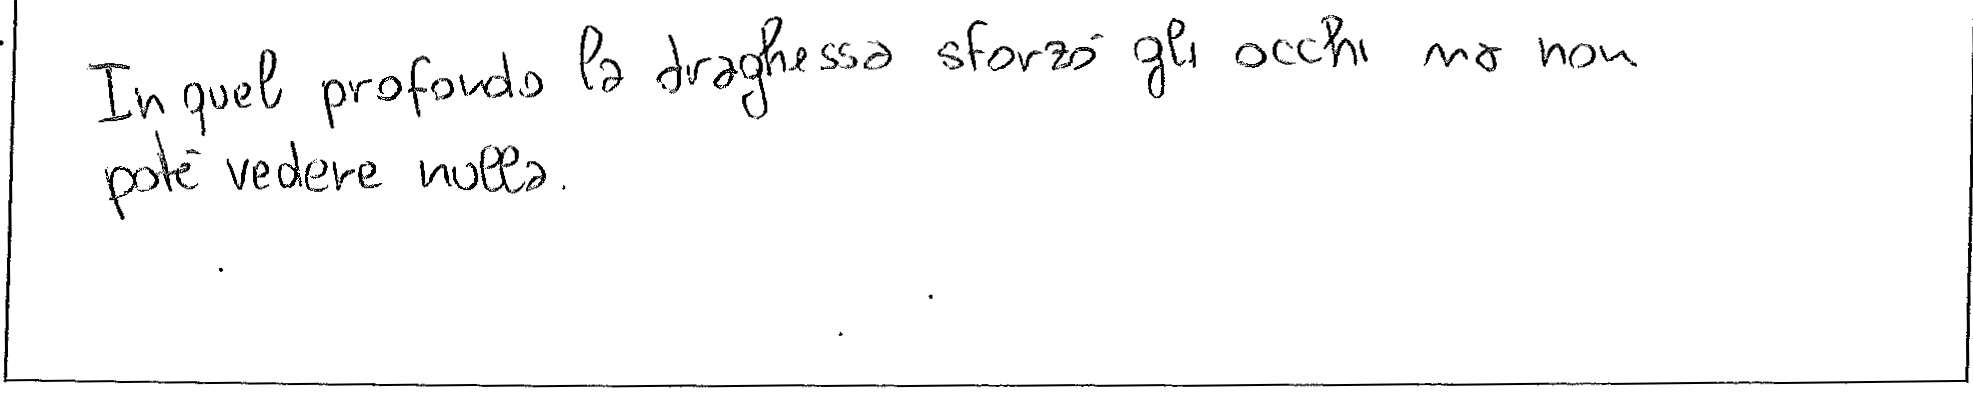 In quel profondo la draghessa sforzò gli occhi ma non
potè vedere nulla.